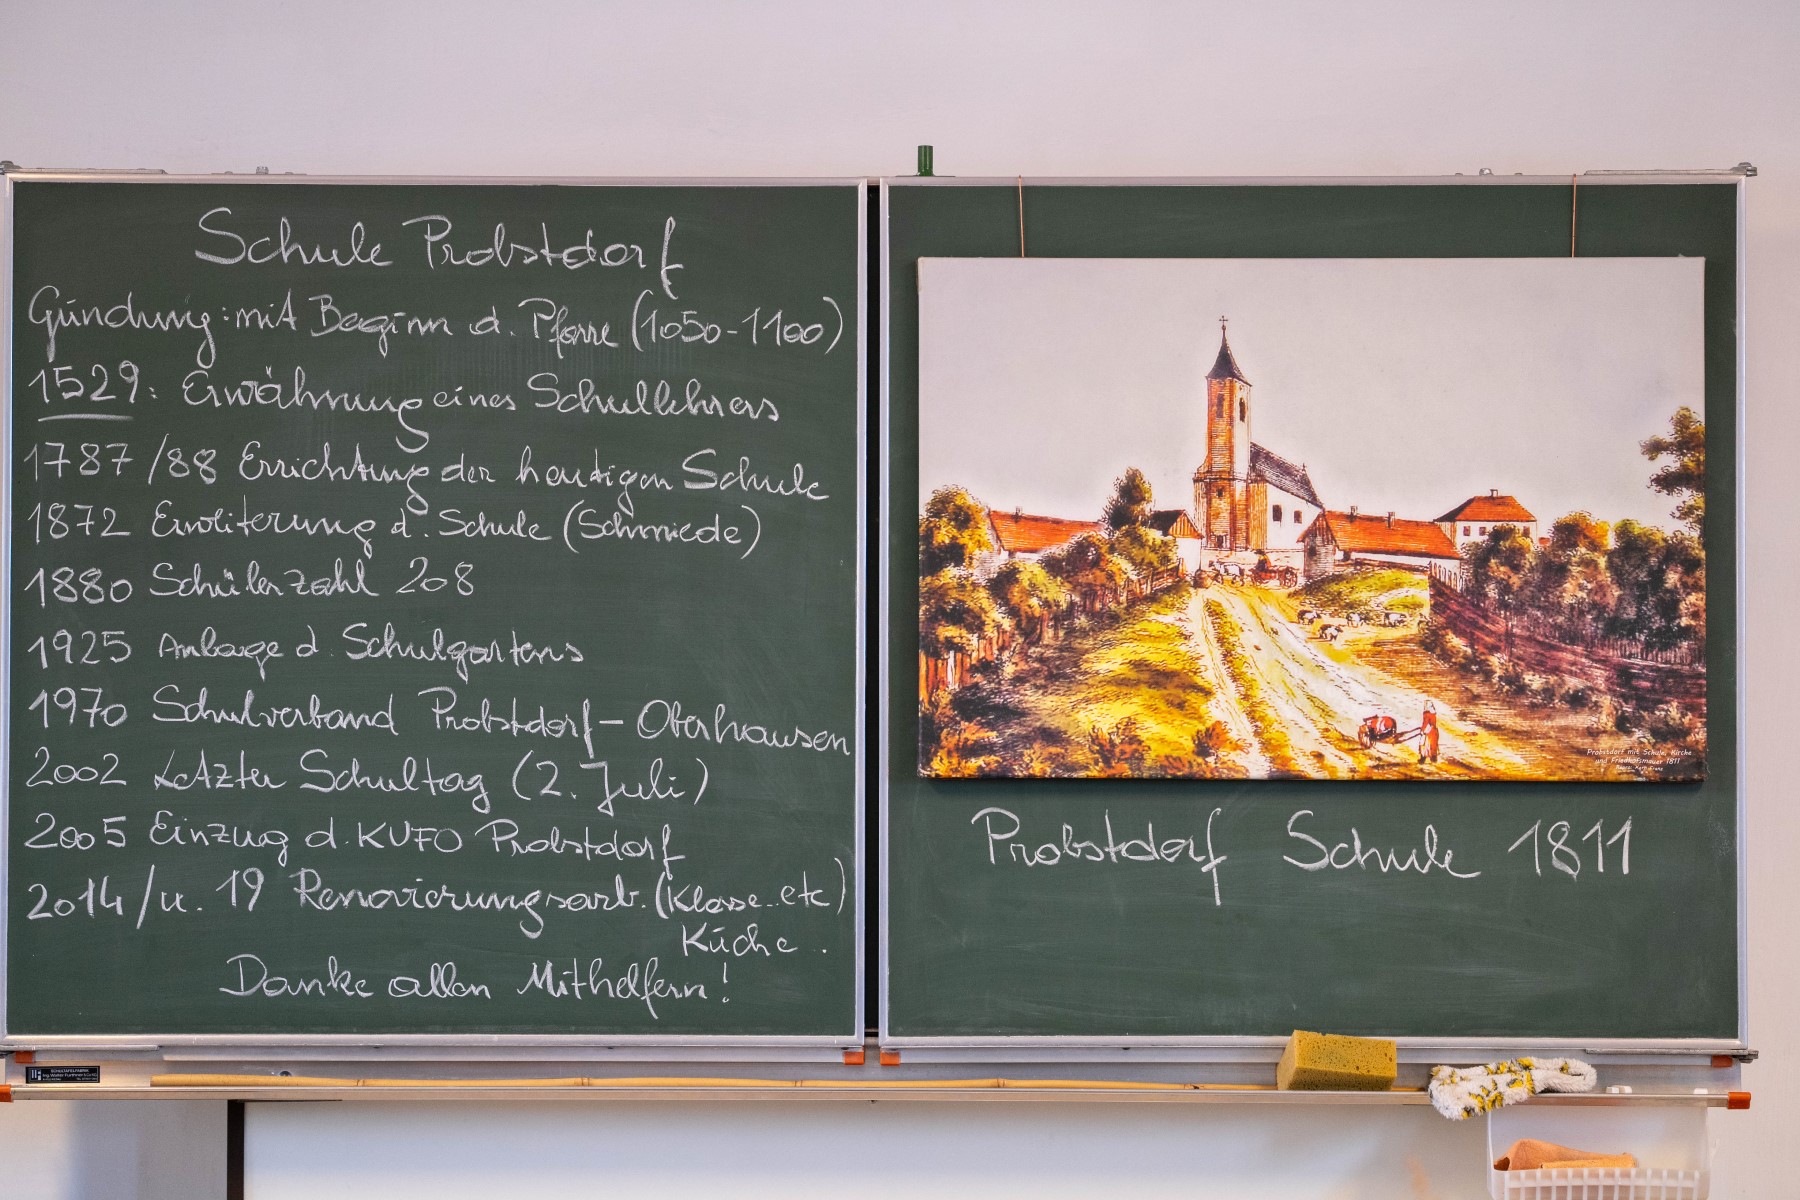 Schule Probstdorf
Gündung: mit Beginn d. Pfarre (1050-1100)
1529: Erwähnung eines Schullehrers
1787/88 Errichtung der heutigen Schule
1872 Erweiterung d. Schule (Schmiede)
1880 Schülerzahl 208
1925 Anlage d. Schulgartens
1970 Schulverband Probstdorf - Oberhausen
2002 Letzter Schultag (2. Juli)
2005 Einzug d. KUFO Probstdorf
2014/u. 19 Renovierungsarb. (Klasse..etc)
Küche .
Danke allen Mithelfern!
Probstdorf mit Schule, Kirche
und Friedhofsmauer 1811
Probstdorf Schule 1811
SCHULTAFELFABRIK